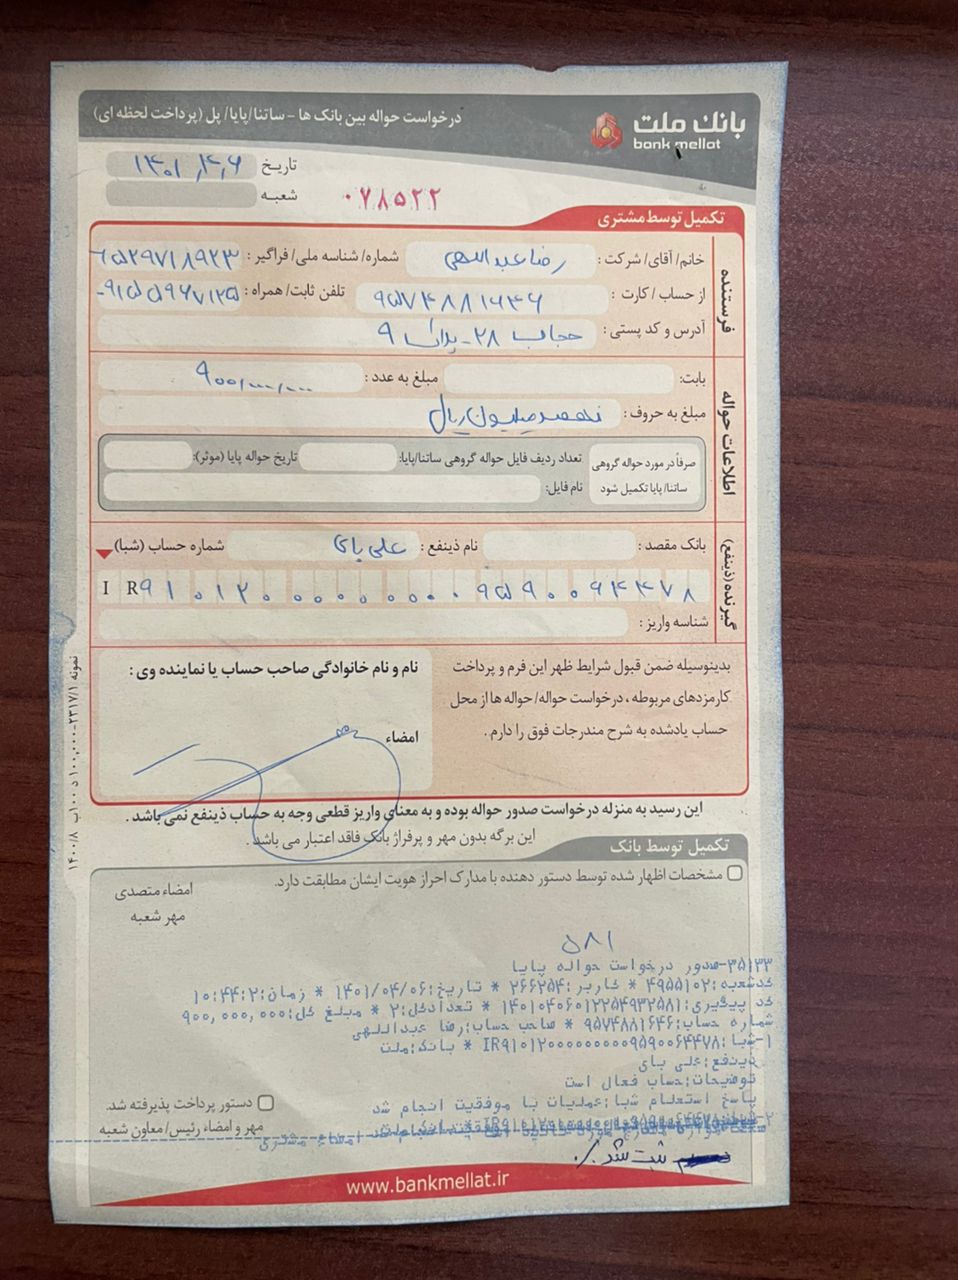 بانک ملت
bank mellat
درخواست حواله بین بانک ها - ساتنا/پایا/ پل (پرداخت لحظه ای)
تاریخ ۱۴۰۱/۴/۶
شعبه
۰۷۸۵۲۲
تکمیل توسط مشتری
فرستنده
خانم/ آقای/ شرکت : رضا عبداللهی شماره/ شناسه ملی/ فراگیر :
از حساب / کارت : ۹۵۷۴۸۸۱۶۴۶ تلفن ثابت/ همراه :
آدرس و کد پستی : حجاب ۲۸ - پلاک ۹
اطلاعات حواله
بابت: مبلغ به عدد : ۹۰۰,۰۰۰,۰۰۰
مبلغ به حروف : نهصد میلیون ریال
صرفاً در مورد حواله گروهی ساتنا/ پایا تکمیل شود
تعداد ردیف فایل حواله گروهی ساتنا/پایا: تاریخ حواله پایا (موثر):
نام فایل:
گیرنده (ذینفع)
بانک مقصد : نام ذینفع : علی بای شماره حساب (شبا)
IR۹۱۰۱۲۰۰۰۰۰۰۰۰۰۰۹۵۹۰۰۶۴۴۷۸
شناسه واریز :
بدینوسیله ضمن قبول شرایط ظهر این فرم و پرداخت
کارمزدهای مربوطه ، درخواست حواله/ حواله ها از محل
حساب یادشده به شرح مندرجات فوق را دارم .
نام و نام خانوادگی صاحب حساب یا نماینده وی :
امضاء
این رسید به منزله درخواست صدور حواله بوده و به معنای واریز قطعی وجه به حساب ذینفع نمی باشد .
این برگه بدون مهر و پرفراژ بانک فاقد اعتبار می باشد .
تکمیل توسط بانک
مشخصات اظهار شده توسط دستور دهنده با مدارک احراز هویت ایشان مطابقت دارد.
امضاء متصدی
مهر شعبه
۵۸۱
۳۵۱۳۳-صدور درخواست حواله پایا
کدشعبه:۴۹۵۵۱۰۲ * کاربر:۲۶۶۲۵۴ * تاریخ:۱۴۰۱/۰۴/۰۶ * زمان:۱۰:۴۴:۲
کد پیگیری:۱۴۰۱۰۴۰۶۰۱۲۲۵۴۹۳۲۵۸۱ * تعدادکل:۲ * مبلغ کل:۹۰۰,۰۰۰,۰۰۰
شماره حساب:۹۵۷۴۸۸۱۶۴۶ * صاحب حساب:رضا عبداللهی
۱-شبا:IR۹۱۰۱۲۰۰۰۰۰۰۰۰۰۰۹۵۹۰۰۶۴۴۷۸ * بانک:ملت
ذینفع:علی بای
توضیحات:حساب فعال است
پاسخ استعلام شبا:عملیات با موفقیت انجام شد
دستور پرداخت پذیرفته شد.
مهر و امضاء رئیس/ معاون شعبه
ثبت شد
www.bankmellat.ir